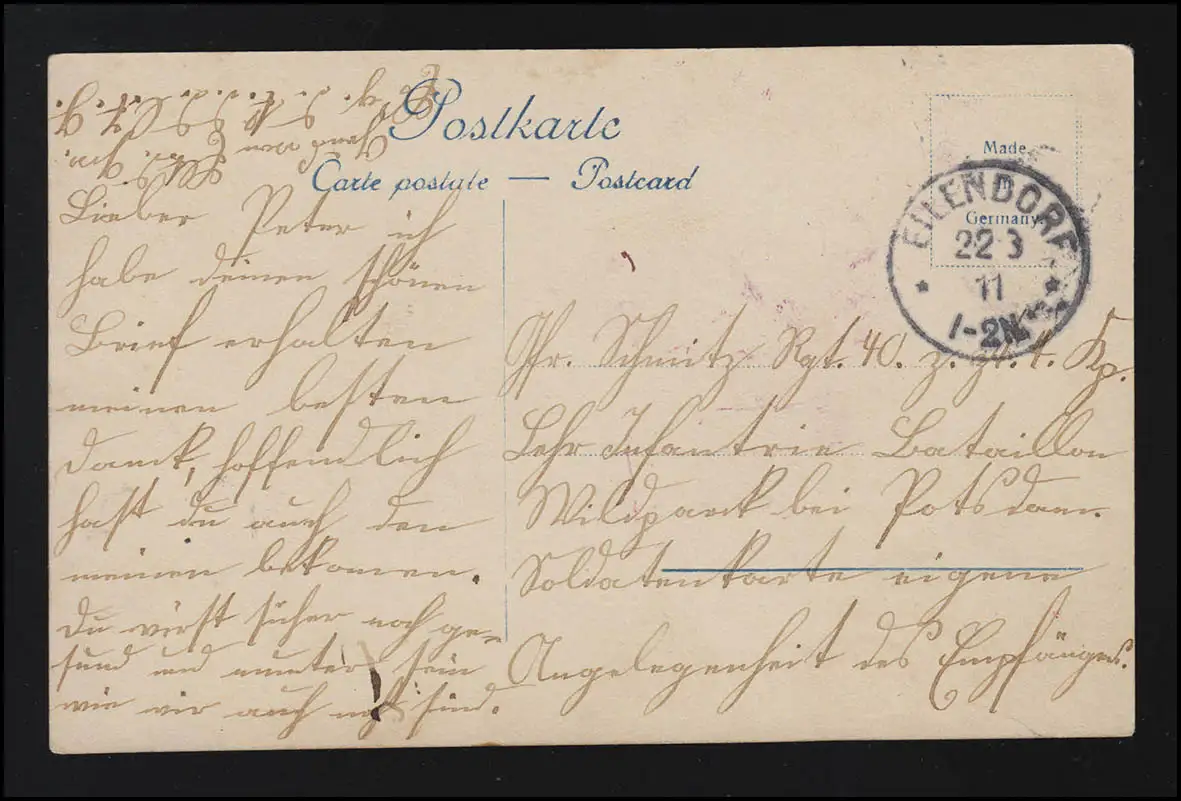 Postkarte
Carte postale — Postcard
Made
Germany
EILENDORF
22 3
11
1-2N
Lieber Peter ich
habe deinen schönen
Brief erhalten
meinen besten
Danck, hoffendlich
hast du auch den
meinen bekomen.
Du wirst sicher noch ge=
sund und munter sein
wie wir auch noch sind.
Gfr. Schmitz Rgt. 40. z. Zt. 4. Kp.
Lehr Infantrie Bataillon
Wildparck bei Potsdam.
Soldatenkarte eigene
Angelegenheit des Empfängers.